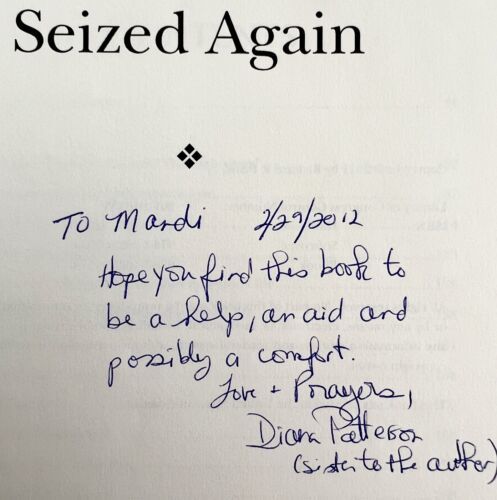 Seized Again
To Mardi 2/29/2012
Hope you find this book to
be a help, an aid and
possibly a comfort.
Love + Prayers,
Diana Patterson
(sister to the author)